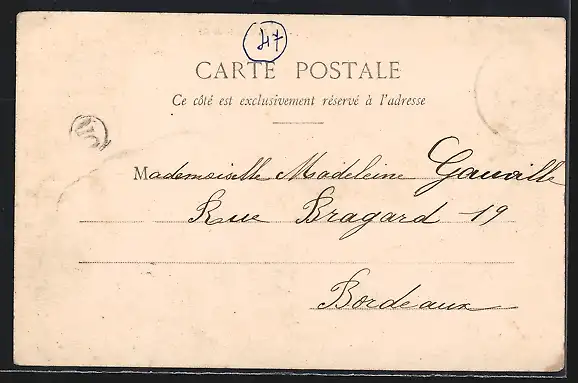 47
CARTE POSTALE
Ce côté est exclusivement réservé à l'adresse
Mademoiselle Madeleine Gauville
Rue Bragard 19
Bordeaux